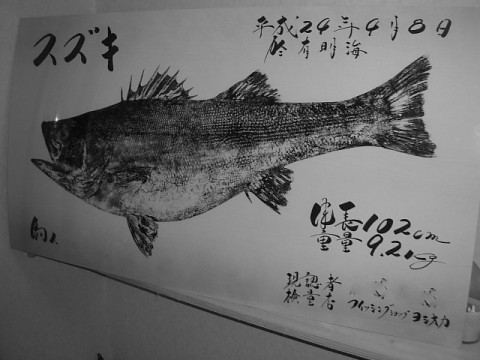 スズキ
平成24年4月8日
於 有明海
体長102cm
重量9.21kg
釣人
現認者
検量店 フィッシングショップ ヨシ丸